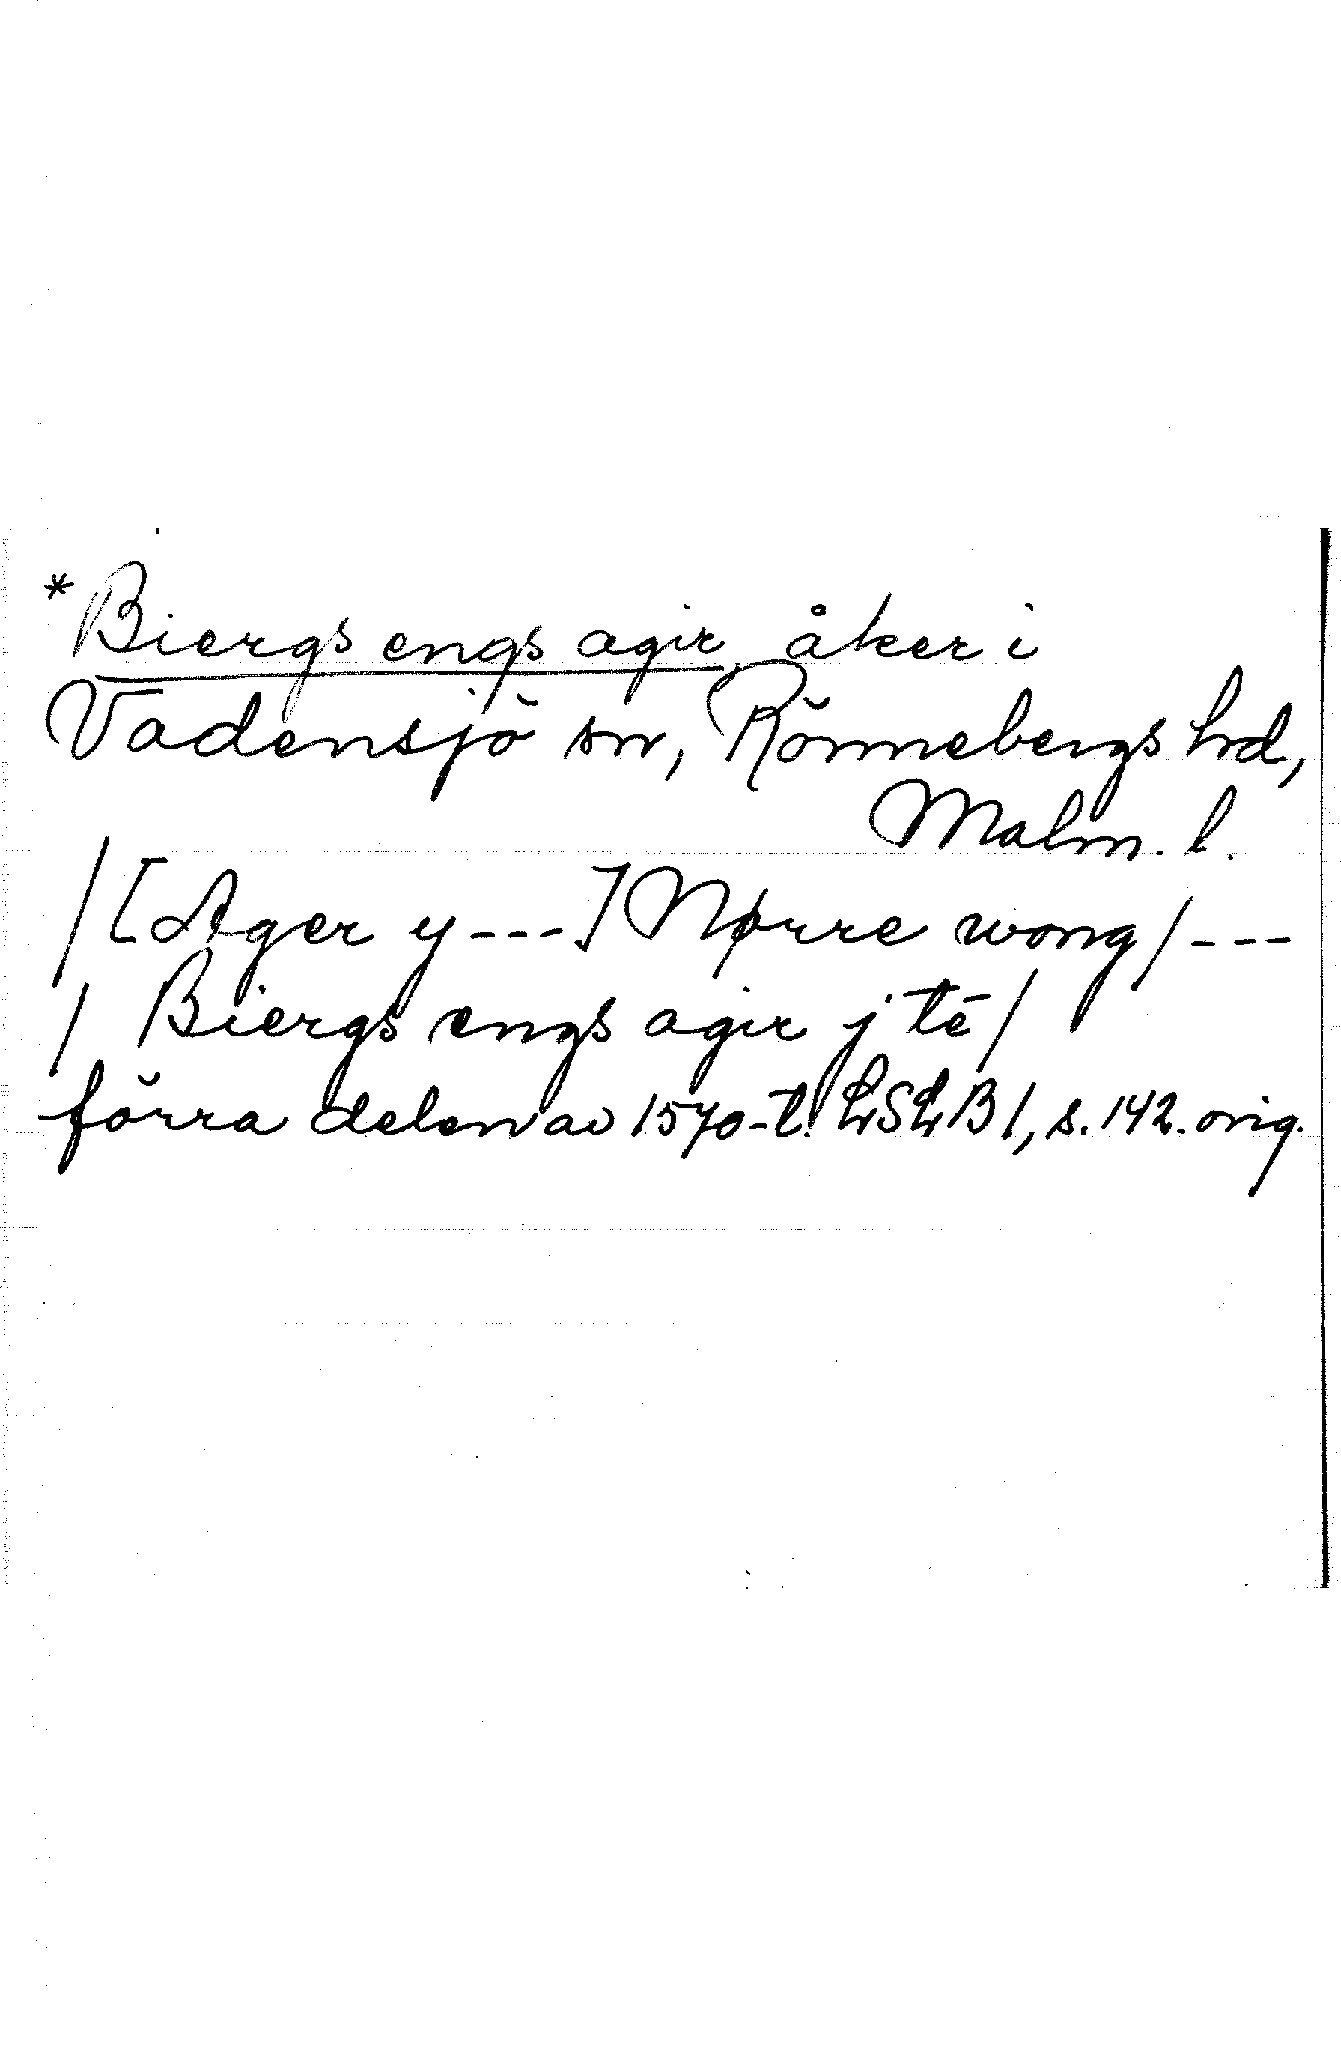 *Biergs engs agir, åker i
Vadensjö sn, Rönnebergs hrd,
Malm. l.
/ [Ager y ---] Nørre wong / ---
/ Biergs engs agir j tē /
förra delen av 1570-t. LSLB 1, s. 142. orig.